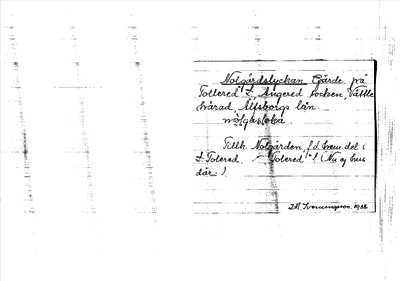 Nolgårdslyckan Gärde på
Tollered 1, Angered socken, Vättle
härad, Älfsborgs län.
nɔlgasloka
Tillh. Nolgården, f.d. hem del i
Tolered. Tolered 1 (Nu ej hus
där.)
1933